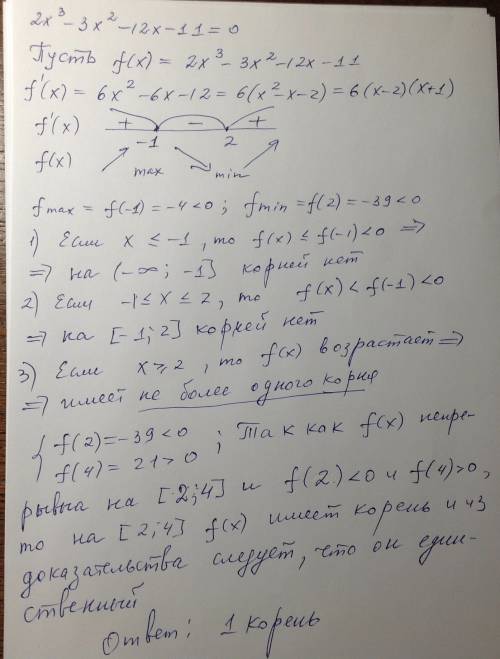 2x³ - 3x² - 12x - 11 = 0
Пусть f(x) = 2x³ - 3x² - 12x - 11
f'(x) = 6x² - 6x - 12 = 6(x² - x - 2) = 6(x-2)(x+1)
f'(x) + - +
-1 2
f(x) max min
fmax = f(-1) = -4 < 0 ; fmin = f(2) = -39 < 0
1) Если x ≤ -1, то f(x) ≤ f(-1) < 0 ⇒
⇒ на (-∞; -1] корней нет
2) Если -1 ≤ x ≤ 2, то f(x) < f(-1) < 0
⇒ на [-1; 2] корней нет
3) Если x ≥ 2, то f(x) возрастает ⇒
⇒ имеет не более одного корня
{ f(2) = -39 < 0 ; Так как f(x) непре-
f(4) = 21 > 0
рывна на [2; 4] и f(2) < 0 и f(4) > 0,
то на [2; 4] f(x) имеет корень и из
доказательства следует, что он един-
ственный
Ответ: 1 корень